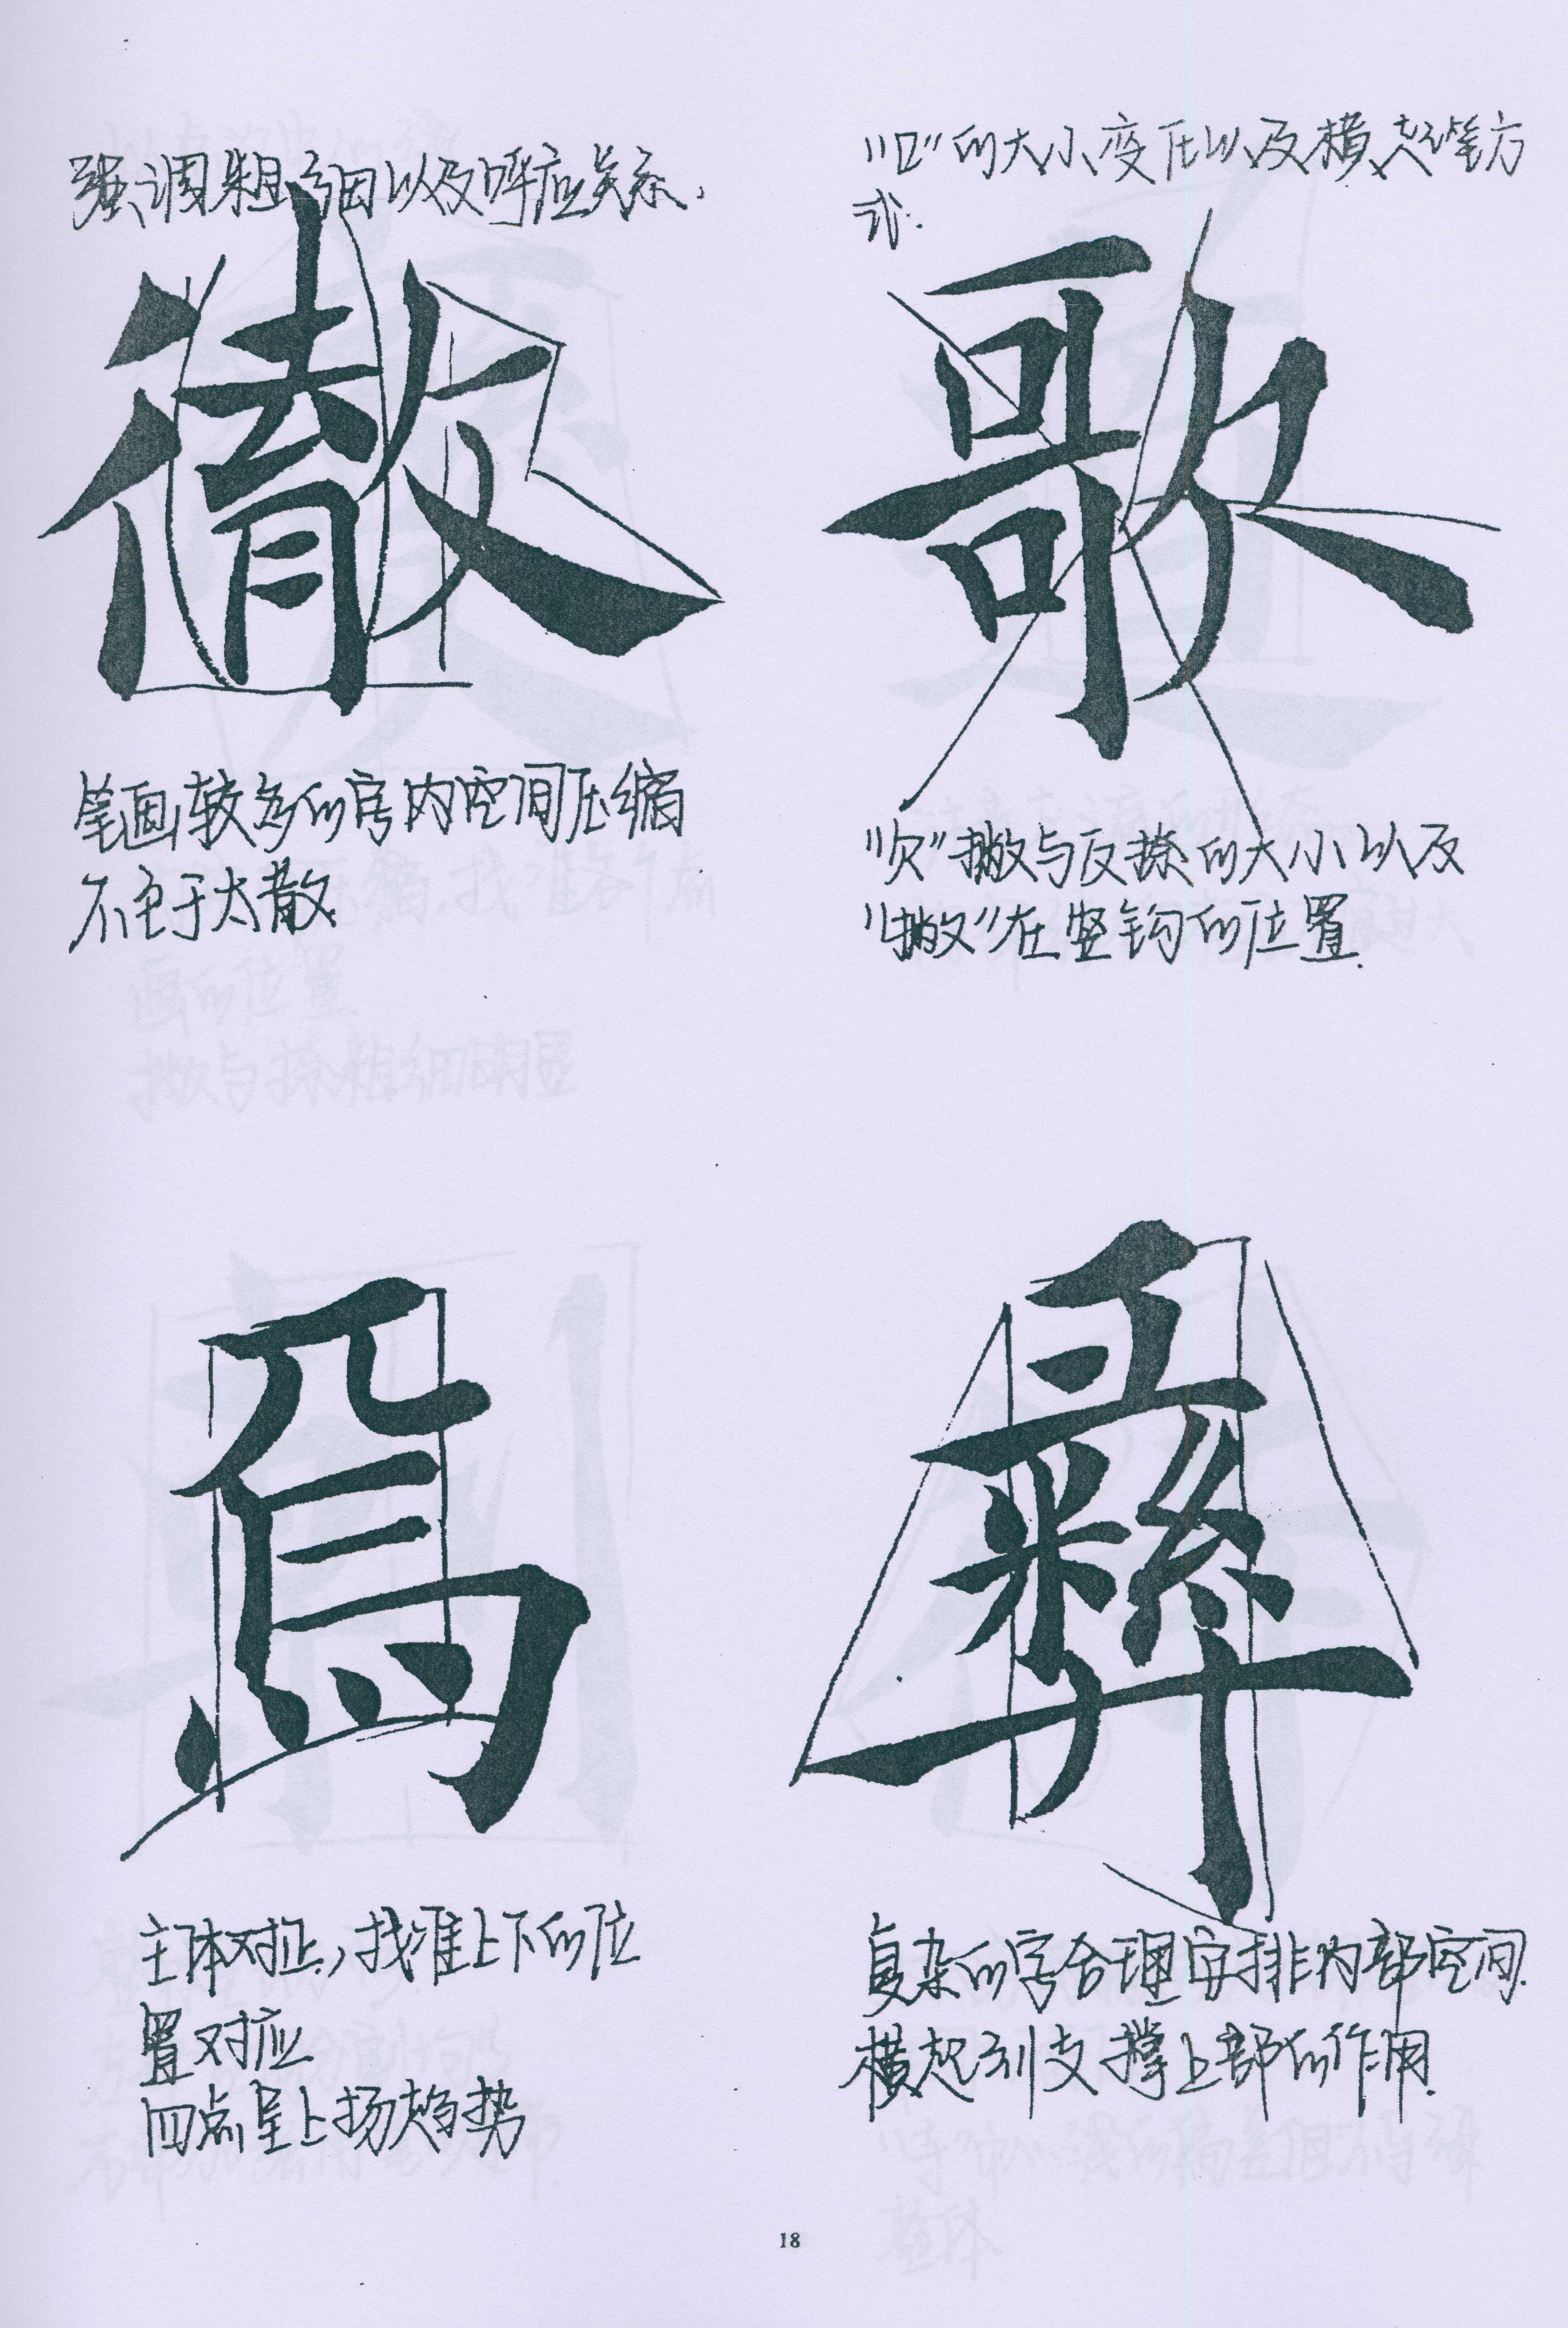 强调粗细以及呼应关系、
徹
笔画较多的字内空间压缩
不至于太散.
"口"的大小变化以及横起笔方
式.
歌
"欠"撇与反捺的大小以及
"撇"在竖钩的位置.
爲
主体对正,找准上下的位
置对应
四点呈上扬趋势
彝
复杂的字合理安排内部空间.
横起到支撑上部的作用.
18